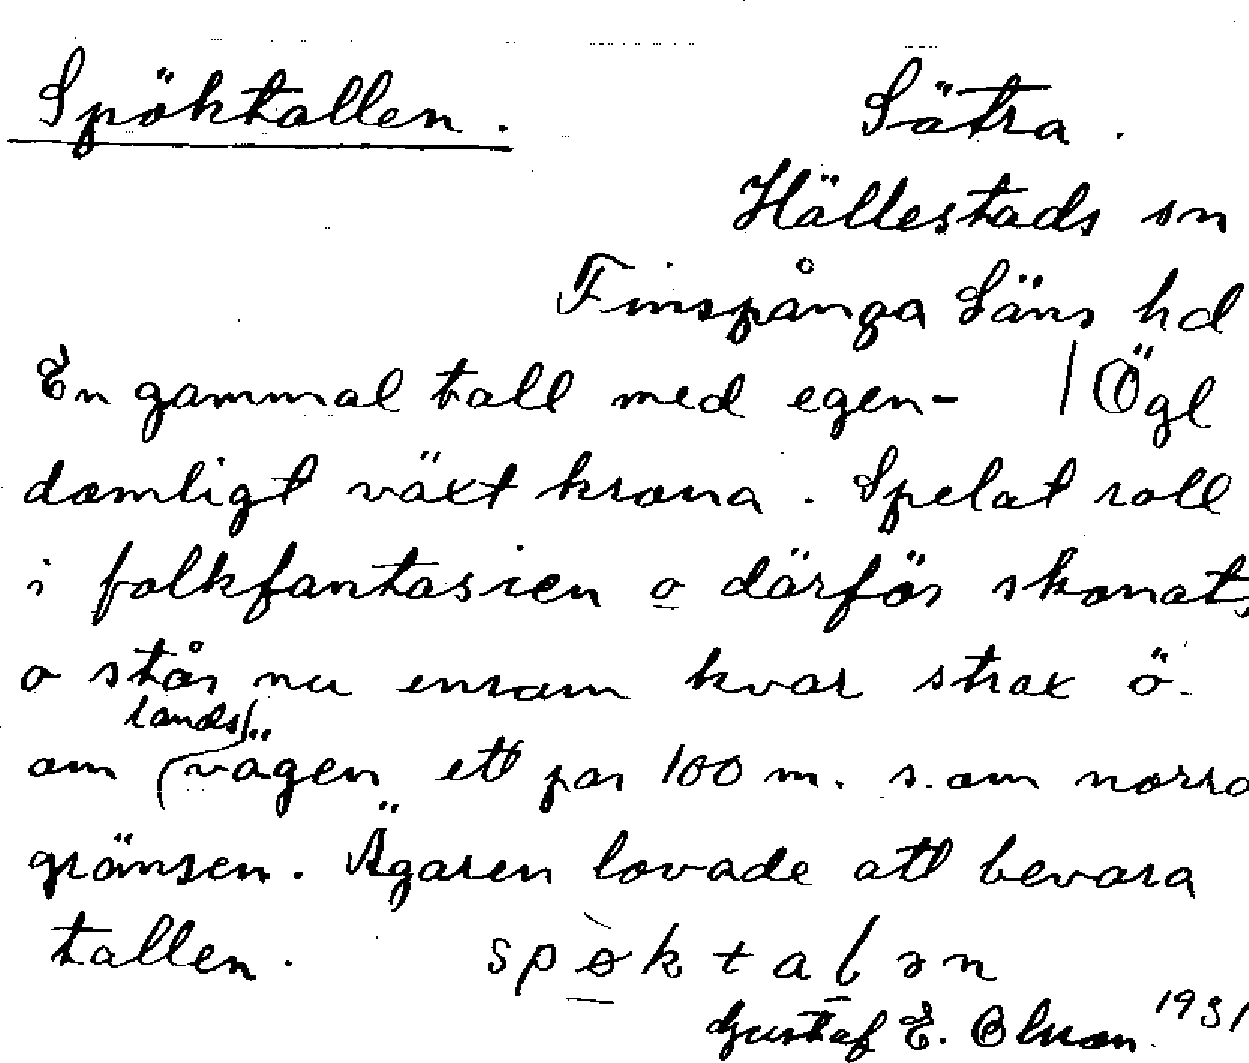 Spöktallen.
Sätra.
Hällestads sn
Finspånga Läns hd
En gammal tall med egen- | Ögl
domligt växt krona. Spelat roll
i folkfantasien o därför skonats
o står nu ensam kvar strax ö.
om landsvägen ett par 100 m. s. om norra
gränsen. Ägaren lovade att bevara
tallen. spøktaḷən
Gustaf E. Olsson 1931